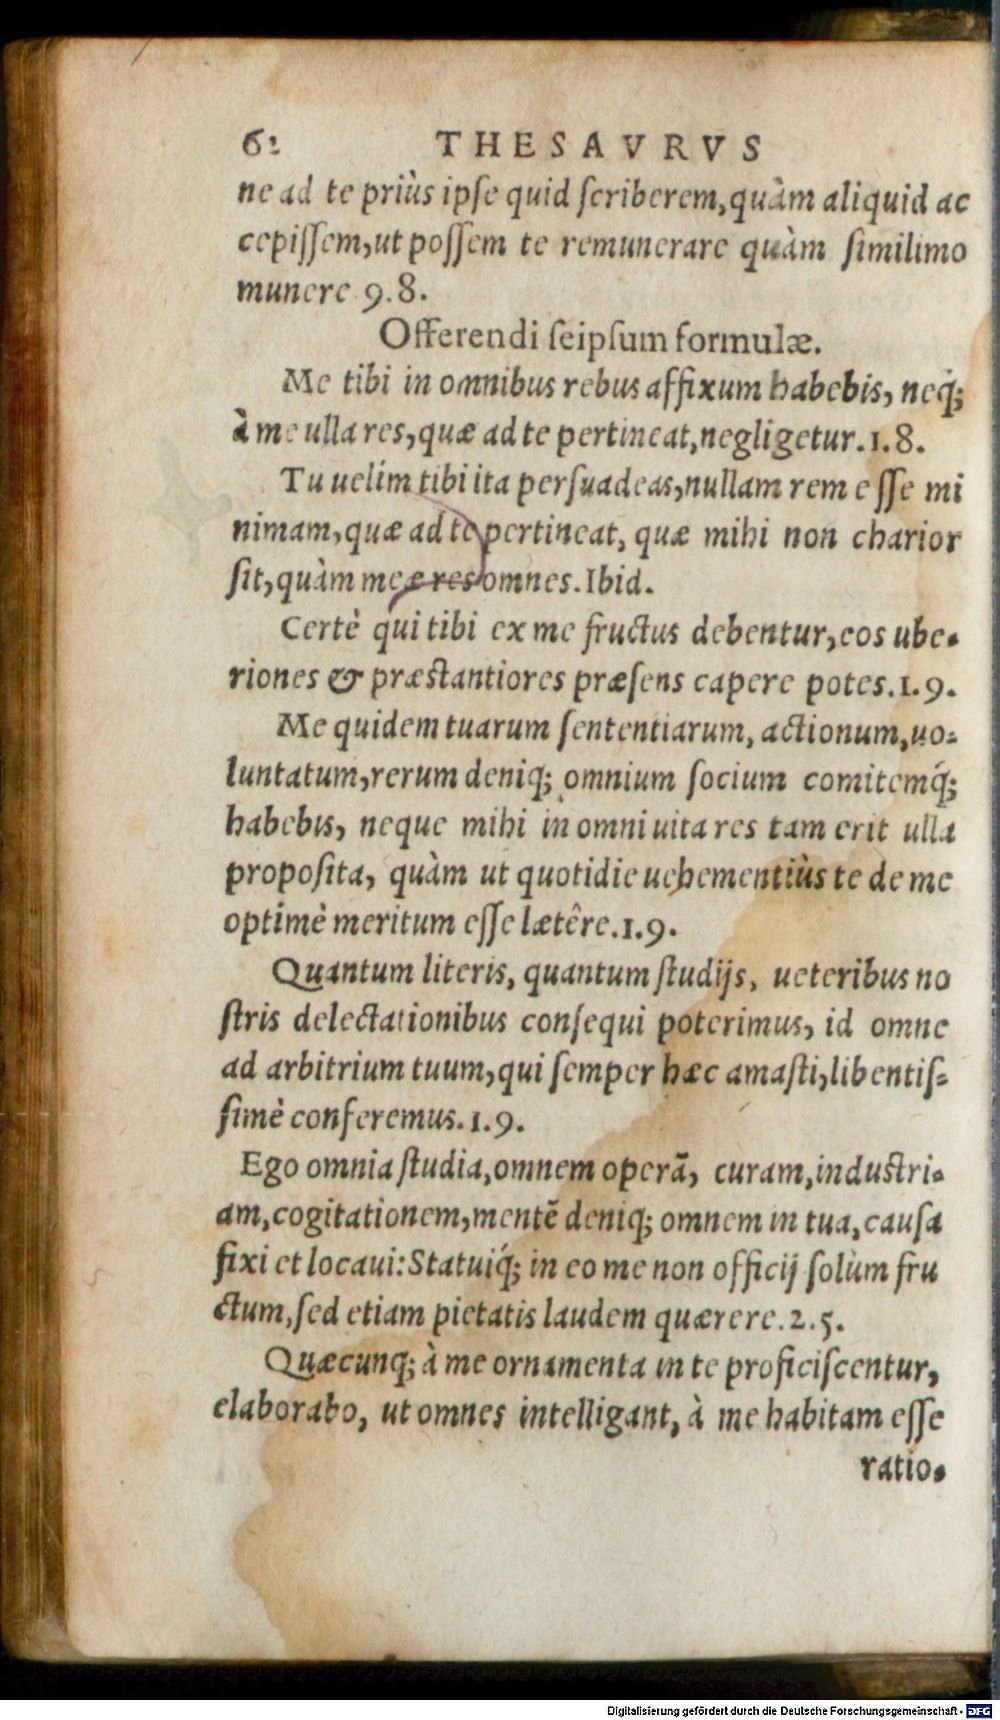 62 THESAVRVS
ne ad te priùs ipſe quid ſcriberem, quàm aliquid ac
cepiſſem, ut poſſem te remunerare quàm ſimilimo
munere 9.8.
Offerendi ſeipſum formulæ.
Me tibi in omnibus rebus affixum habebis, neq́;
à me ulla res, quæ ad te pertineat, negligetur. 1.8.
Tu uelim tibi ita perſuadeas, nullam rem eſſe mi
nimam, quæ ad te pertineat, quæ mihi non charior
ſit, quàm meæ res omnes. Ibid.
Certè qui tibi ex me fructus debentur, eos ube-
riones & præſtantiores præſens capere potes. 1.9.
Me quidem tuarum ſententiarum, actionum, uo-
luntatum, rerum deniq; omnium ſocium comitemq́;
habebis, neque mihi in omni uita res tam erit ulla
propoſita, quàm ut quotidie uehementiùs te de me
optimè meritum eſſe lætêre. 1.9.
Quantum literis, quantum ſtudijs, ueteribus no
ſtris delectationibus conſequi poterimus, id omne
ad arbitrium tuum, qui ſemper hæc amaſti, libentiſ-
ſimè conferemus. 1.9.
Ego omnia ſtudia, omnem operã, curam, induſtri-
am, cogitationem, mentẽ deniq; omnem in tua, cauſa
fixi et locaui: Statuiq́; in eo me non officij ſolùm fru
ctum, ſed etiam pietatis laudem quærere. 2.5.
Quæcunq; à me ornamenta in te proficiſcentur,
elaborabo, ut omnes intelligant, à me habitam eſſe
ratio-
Digitalisierung gefördert durch die Deutsche Forschungsgemeinschaft - DFG